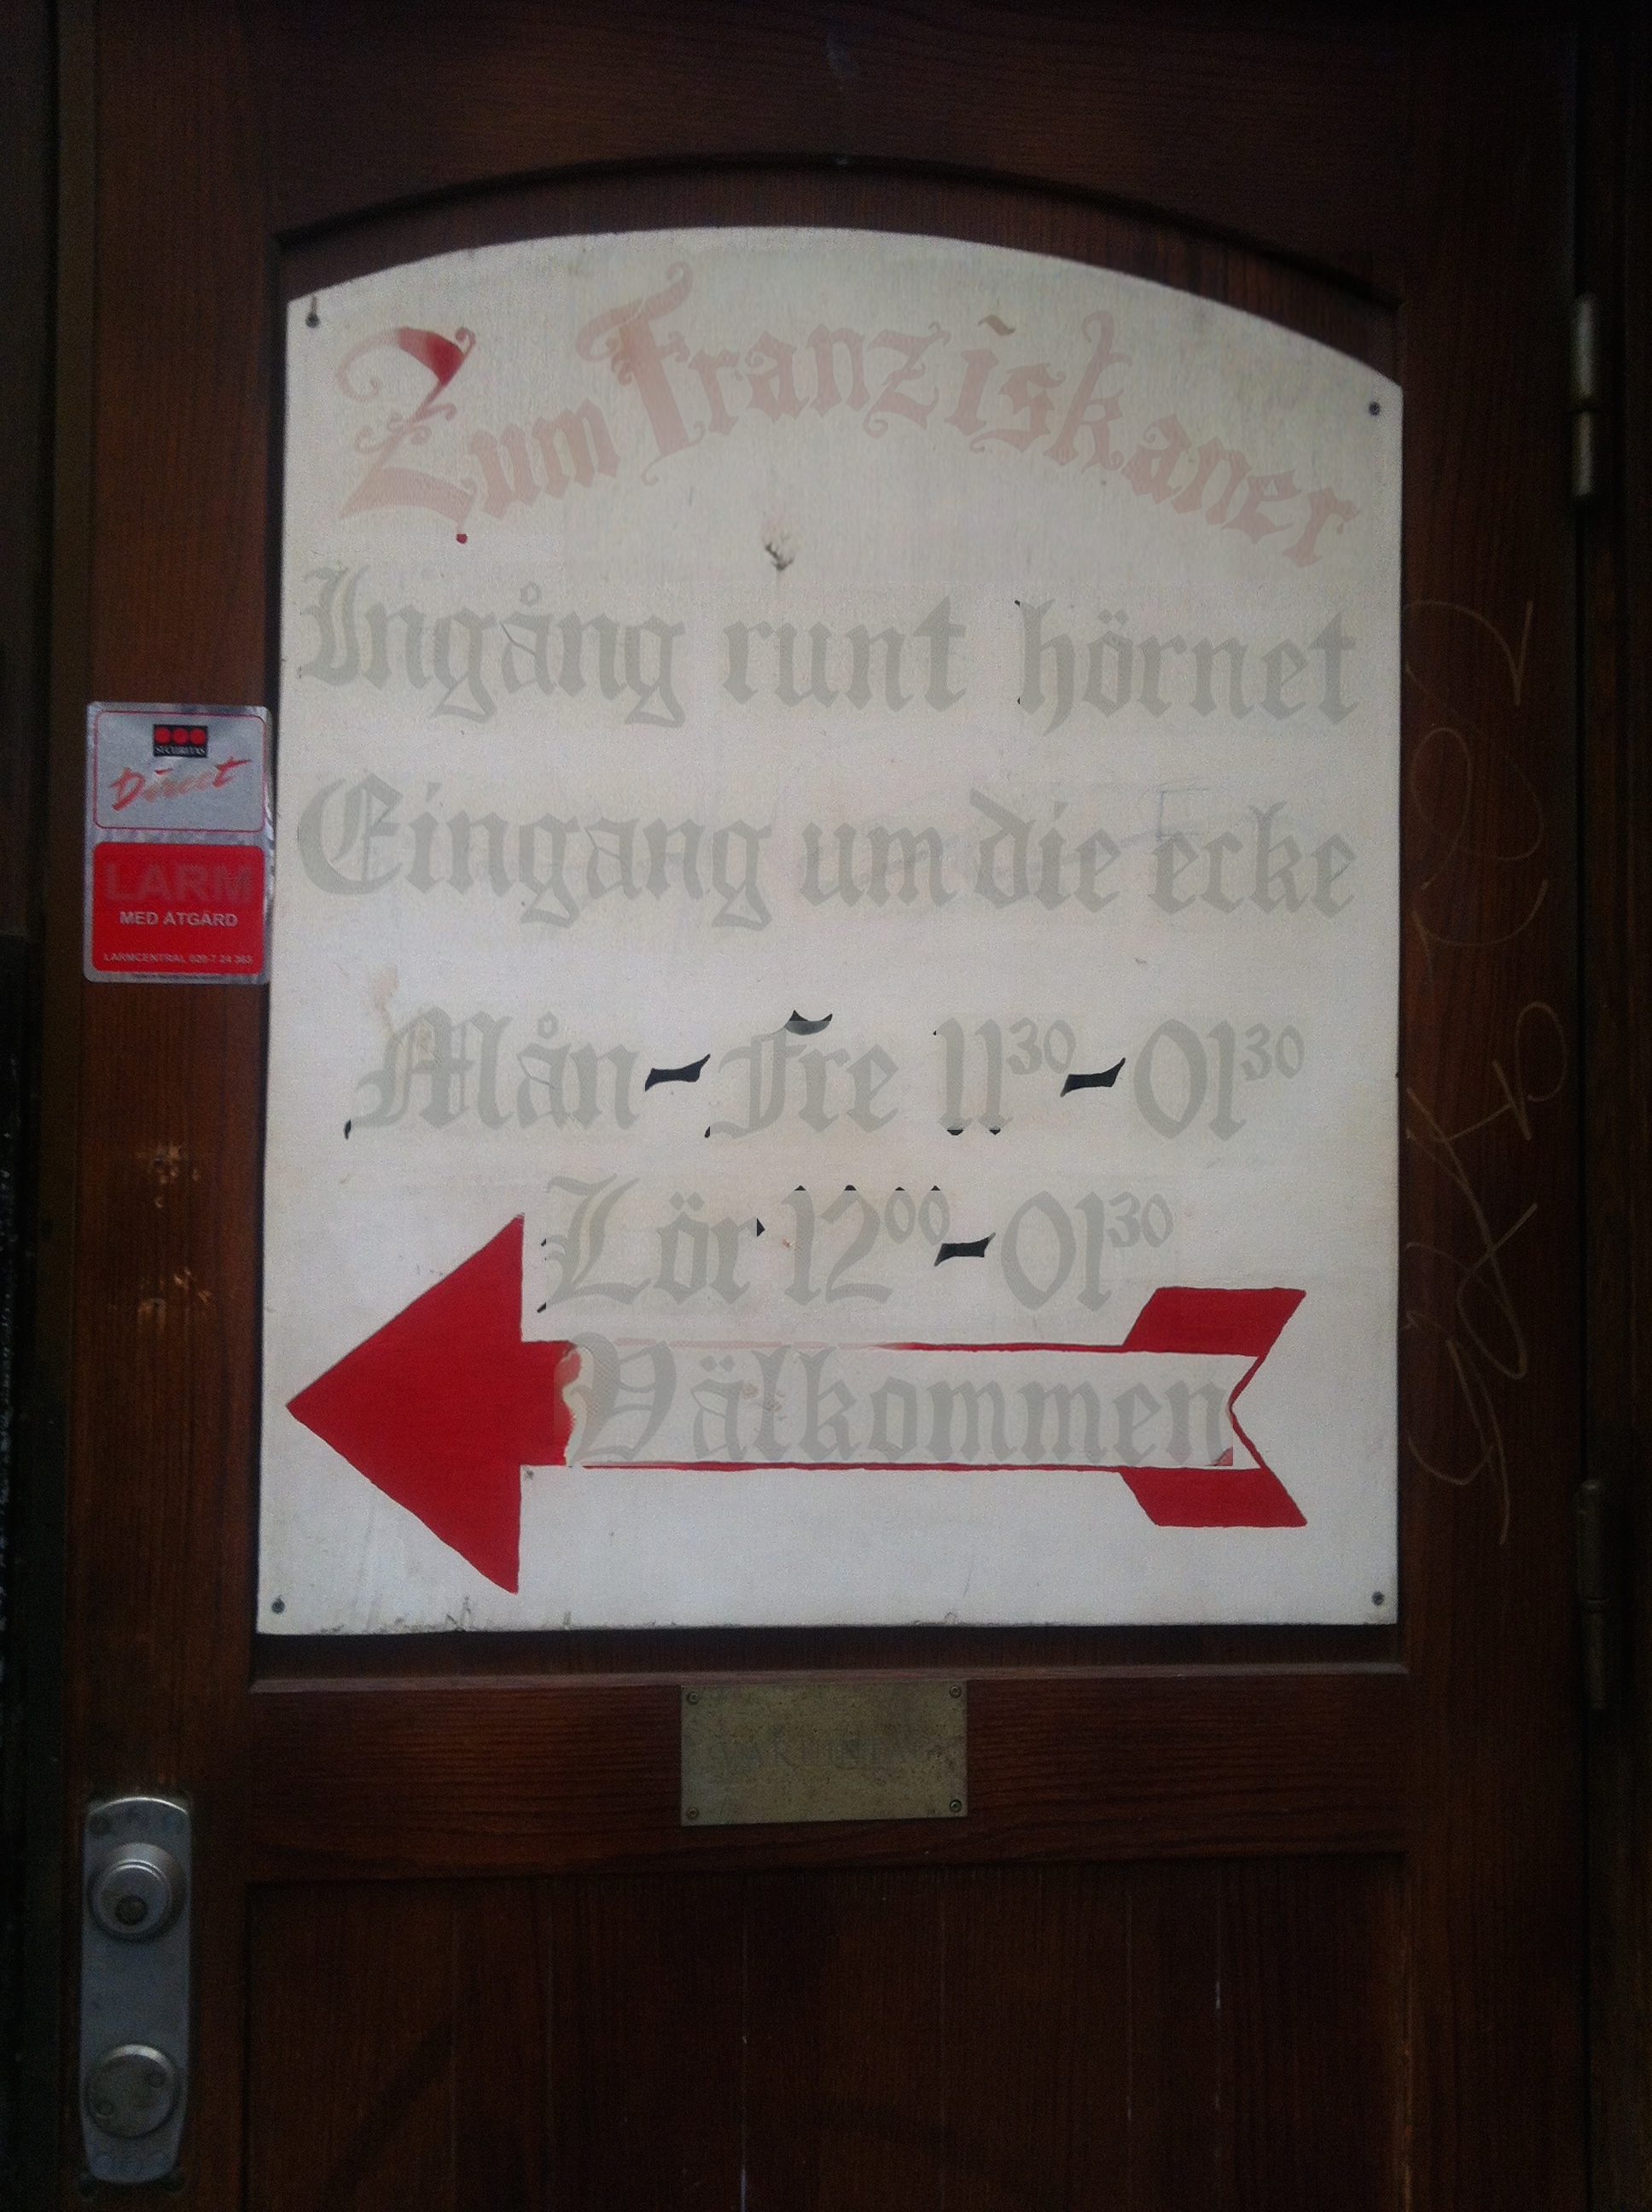 Zum Franziskaner
Ingång runt hörnet
Eingang um die ecke
Mån-Fre 11³⁰-01³⁰
Lör 12⁰⁰-01³⁰
Välkommen
SECURITAS
Direct
LARM
MED ÅTGÄRD
LARMCENTRAL 020-7 24 365